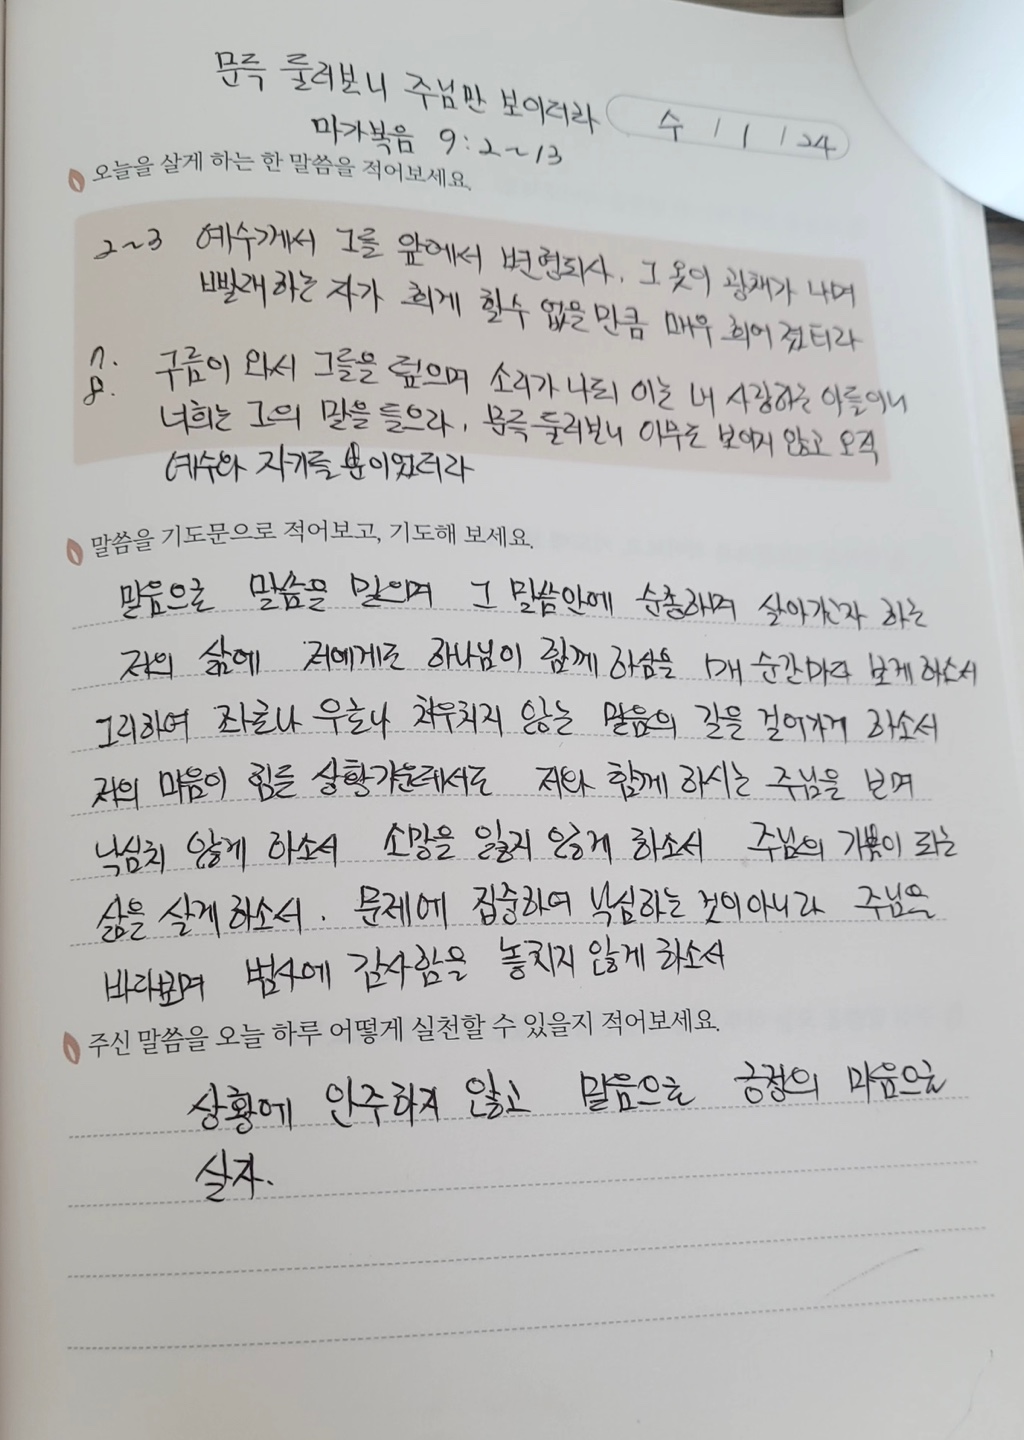 문득 둘러보니 주님만 보이더라
수 / 1 / 24
마가복음 9:2~13
오늘을 살게 하는 한 말씀을 적어보세요.
2~3 예수께서 그를 앞에서 변형되사, 그 옷이 광채가 나며
빨래하는 자가 희게 할수 없을만큼 매우 희어졌더라
7. 구름이 와서 그들을 덮으며 소리가 나되 이는 내 사랑하는 아들이니
8. 너희는 그의 말을 들으라, 문득 둘러보니 아무도 보이지 않고 오직
예수와 자기들 뿐이었더라
말씀을 기도문으로 적어보고, 기도해 보세요.
믿음으로 말씀을 믿으며 그 말씀안에 순종하며 살아가고자 하는
저의 삶에 저에게도 하나님이 함께 하심을 매 순간마다 보게 하소서
그리하여 좌로나 우로나 치우치지 않는 믿음의 길을 걸어가게 하소서
저의 마음이 힘든 상황가운데서도 저와 함께 하시는 주님을 보며
낙심치 않게 하소서 소망을 잃지 않게 하소서 주님의 기쁨이 되는
삶을 살게 하소서. 문제에 집중하여 낙심하는 것이 아니라 주님을
바라보며 범사에 감사함을 놓치지 않게 하소서
주신 말씀을 오늘 하루 어떻게 실천할 수 있을지 적어보세요.
상황에 안주하지 않고 믿음으로 긍정의 마음으로
살자.